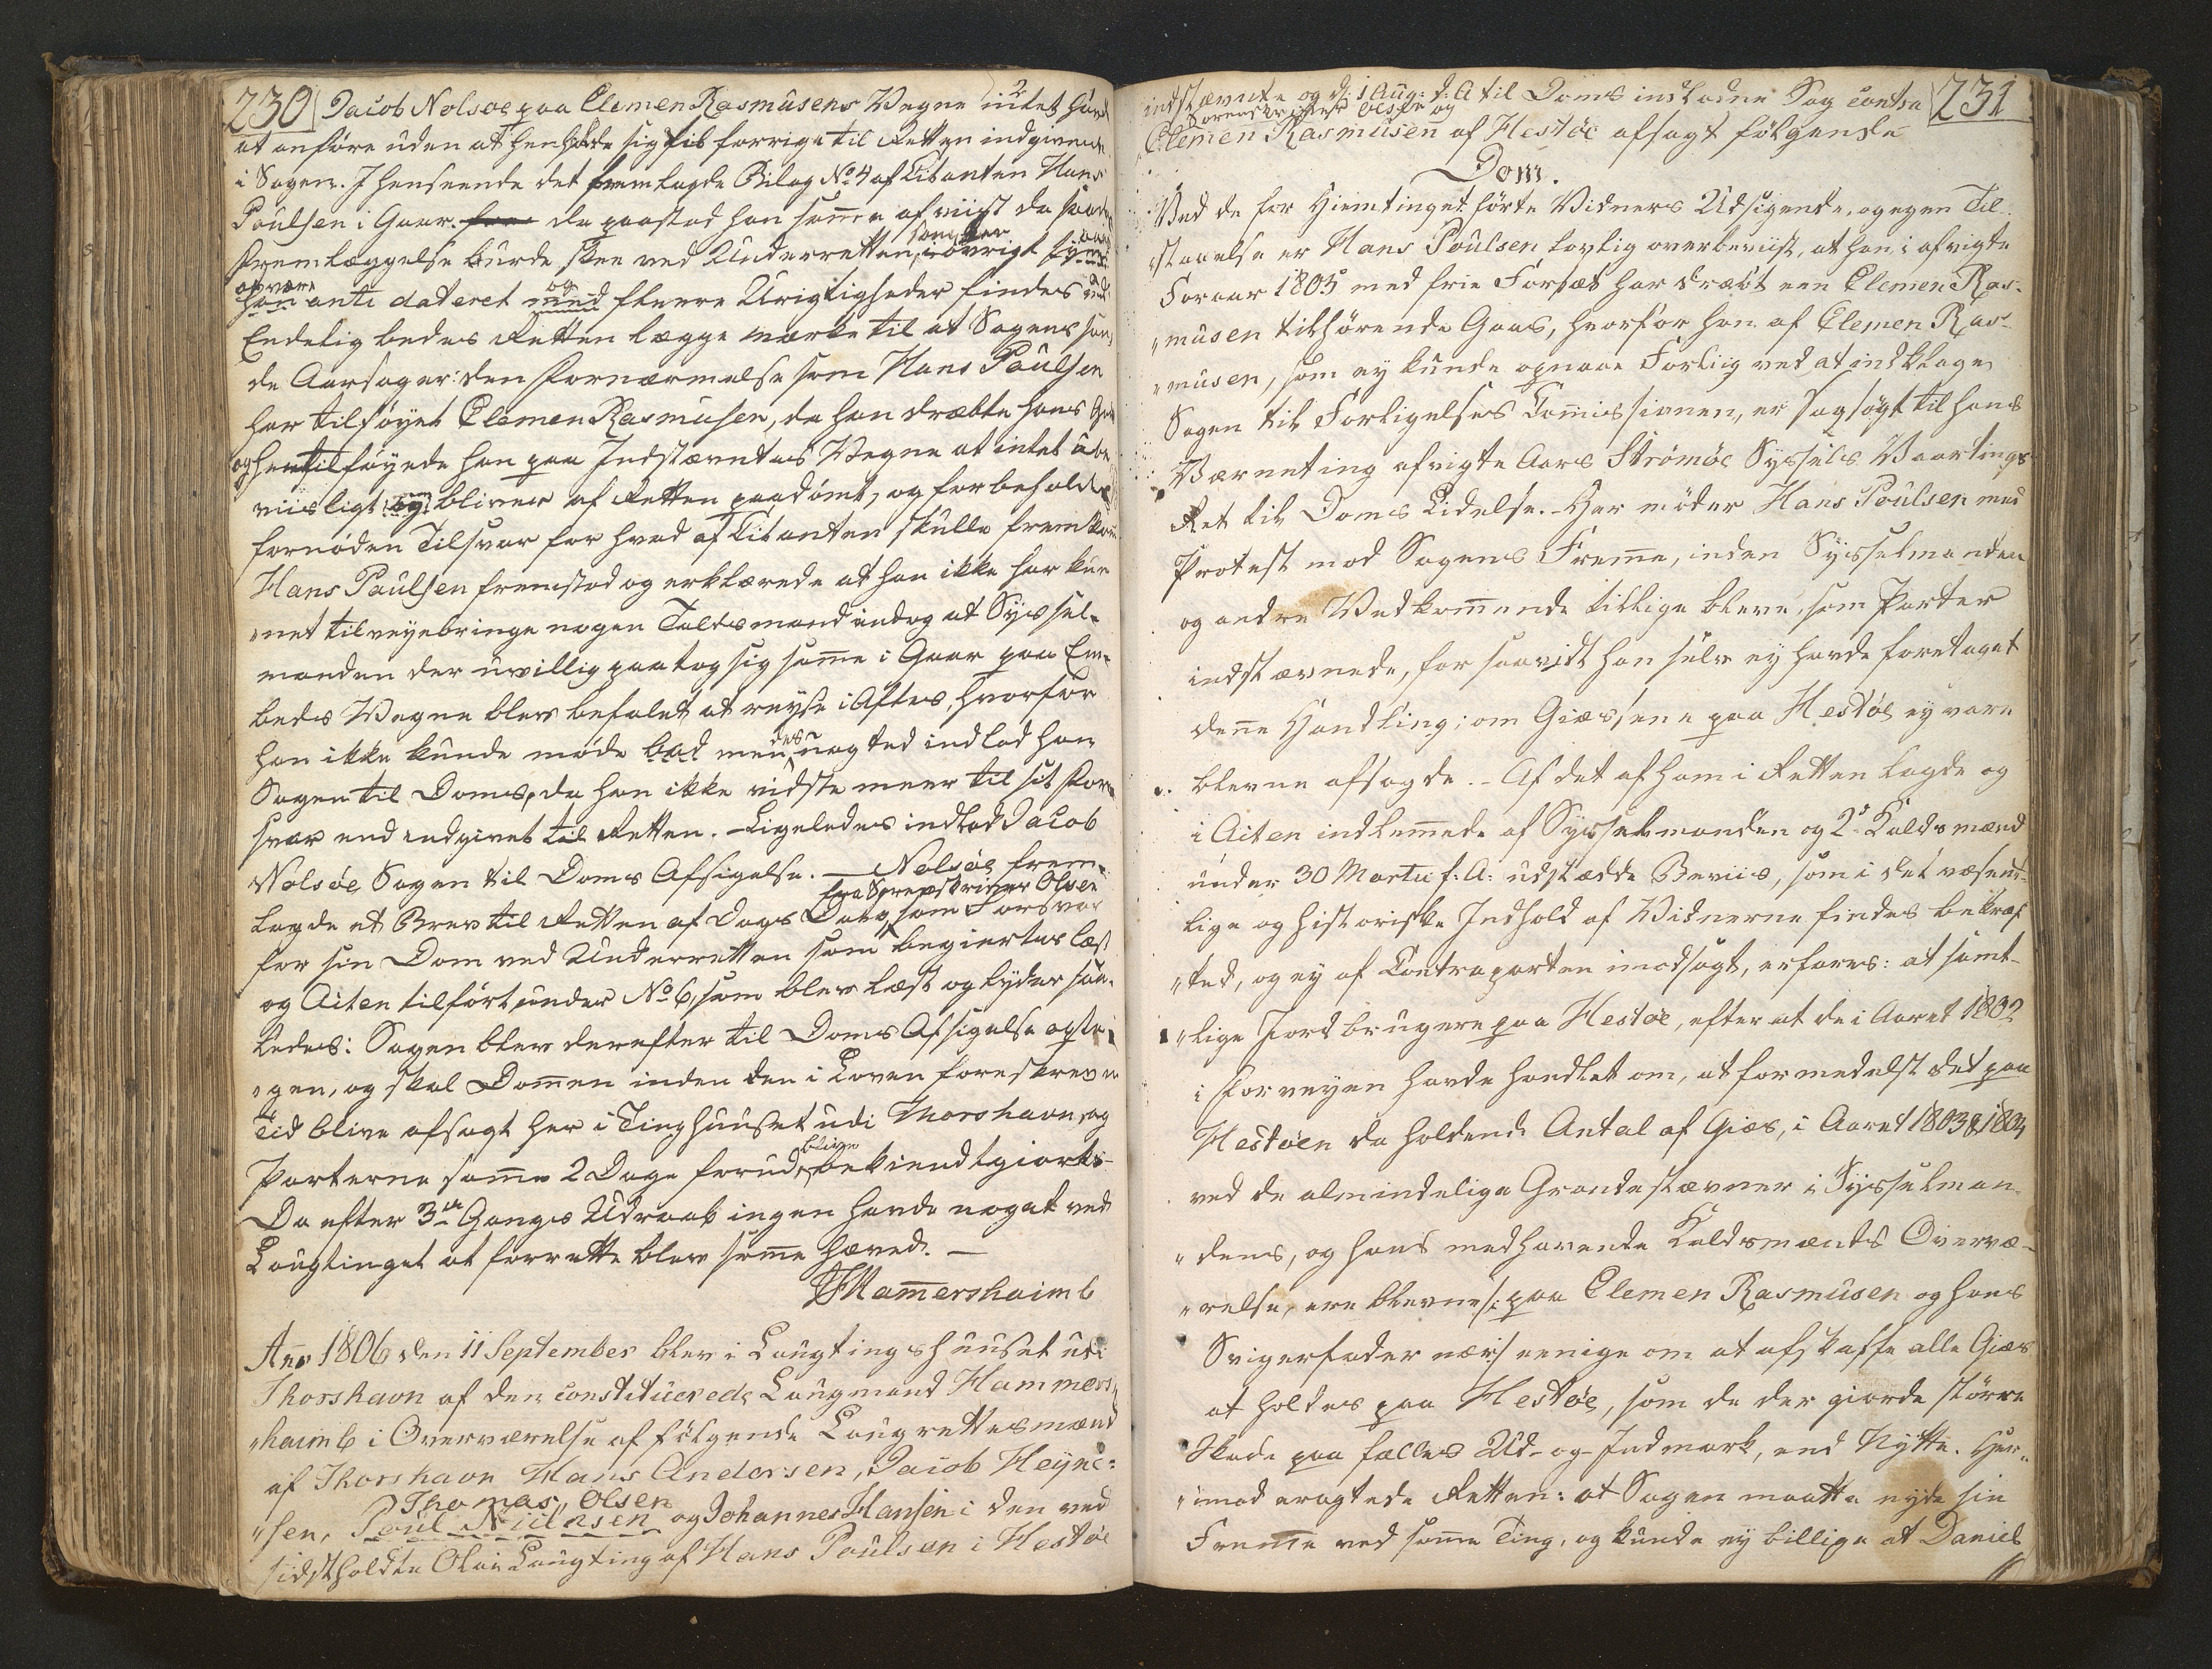 230 Jacob Nolsøe paa Clemen Rasmusens Vegne intet havde
at anføre uden at henholde sig til forrige til Retten indgivende
i Sagen. I henseende det fremlagde Bilag No 4 af Citanten Hans
Poulsen i Gaar. da paastod han samme afviist da saadan
Fremlæggelse burde skee ved Underretten, som den i øvrigt synes
at være
han ante dateret og med fleere Urigtigheder findes
Endelig bedes Retten lægge mærke til at Sagens san-
de Aarsager: den Fornærmelse som Hans Poulsen
har tilføyet Clemen Rasmusen, da han dræbte hans Gaas
og hertil føyede han paa Indstævntes Vegne at intet ube
viisligt ey bliver af Retten paadømt, og forbeholdes
fornøden Tilsvar for hvad af Citanten skulle fremkom
Hans Poulsen fremstod og erklærede at han ikke har kun
"net tilveyebringe nogen Taldsmand endog at Syssel-
manden der uvillig paatog sig samme i Gaar paa Em-
beds Vegne blev befalet at reyse i Aftes, hvorfor
han ikke kunde møde men desuagted indlod han
Sagen til Doms, da han ikke vidste meer til sit For
svar end indgivet til Retten. - Ligeledes indlod Jacob
Nolsøe Sagen til Doms Afsigelse. - Nolsøe frem-
fra Sorenskriver Olsen
lagde et Brev til Retten af Dags Dato, som Forsvar
for sin Dom ved Underretten som begiertes læst
og Acten tilført under No 6, som blev læst og lyder saa-
ledes: Sagen blev derefter til Doms Afsigelse opta
"gen, og skal Dommen inden den i Loven foreskrevne
Tid blive afsagt her i Tinghuuset udi Thorshavn, og
Parterne samme 2 Dage forud blive bekiendtgiort.
Da efter 3de Gangs Udraab ingen havde noget ved
Laugtinget at forrette blev samme hæved. -
Hamershaimb
Ano 1806 den 11 September blev i Laugtingshuuset udi
Thorshavn af den constituerede Laugmand Hammers
"haimb i Overværelse af følgende Laugrettesmænd
af Thorshavn Hans Andersen, Jacob Heyne-
Thomas Olsen
"sen, Poul Nielsen og Johannes Hansen i den ved
sidstholdte Olai Laugting af Hans Poulsen i Hestøe
231
indstævnte og d: 1 Aug: d: A til Doms indladne Sag contra
Sorenskriver Olsen og
Clemen Rasmusen af Hestøe afsagt følgende
Dom.
Ved de for Hiemtinget førte Vidners Udsigende, og egen Til-
"staaelse er Hans Poulsen lovlig overbeviist, at han i afvigte
Foraar 1805 med frie Forsæt har dræbt een Clemen Ras-
"musen tilhørende Gaas, hvorfor han af Clemen Ras-
"musen, som ey kunde opnaae Forliig ved at indklage
Sagen til Forligelses Commissionen, er sagsøgt til hans
Værneting afvigte Aars Strømøe Syssels Vaartings
Ret til Doms Lidelse. - Her møder Hans Poulsen med
Protest mod Sagens Fremme, inden Sysselmanden
og andre Vedkommende tillige bleve, som Parter
indstævnede, for saavidt han selv ey havde foretaget
denne Handling; om Giæssene paa Hestøe ey vare
blevne afsagde. - Af det af ham i Retten lagde og
i Acten indlemmede af Sysselmanden og 2de Kaldsmænd
under 30 Martii f: A: udstædde Beviis, som i det væsent-
lige og historiske Indhold af Vidnerne findes bekræf
"ted, og ey af Contraparten imodsagt, erfares: at samt-
"lige Jordbrugere paa Hestøe, efter at de i Aaret 1802
i Forveyen havde handlet om, at formedelst det paa
Hestøen da holdende Antal af Giæs, i Aaret 1803 & 1804
ved de almindelige Grandestævner i Sysselman-
"dens, og hans medhavende Kaldsmænds Overvæ-
"relse, ere blevne /: paa Clemen Rasmusen og hans
Svigerfader nær :/ eenige om at afskaffe alle Giæs
at holdes paa Hestøe, som de der giorde større
Skade paa fælles Ud- og Indmark, end Nytte. Her-
"imod eragtede Retten: at Sagen maatte nyde sin
Fremme ved samme Ting, og kunde ey billige at Daniel